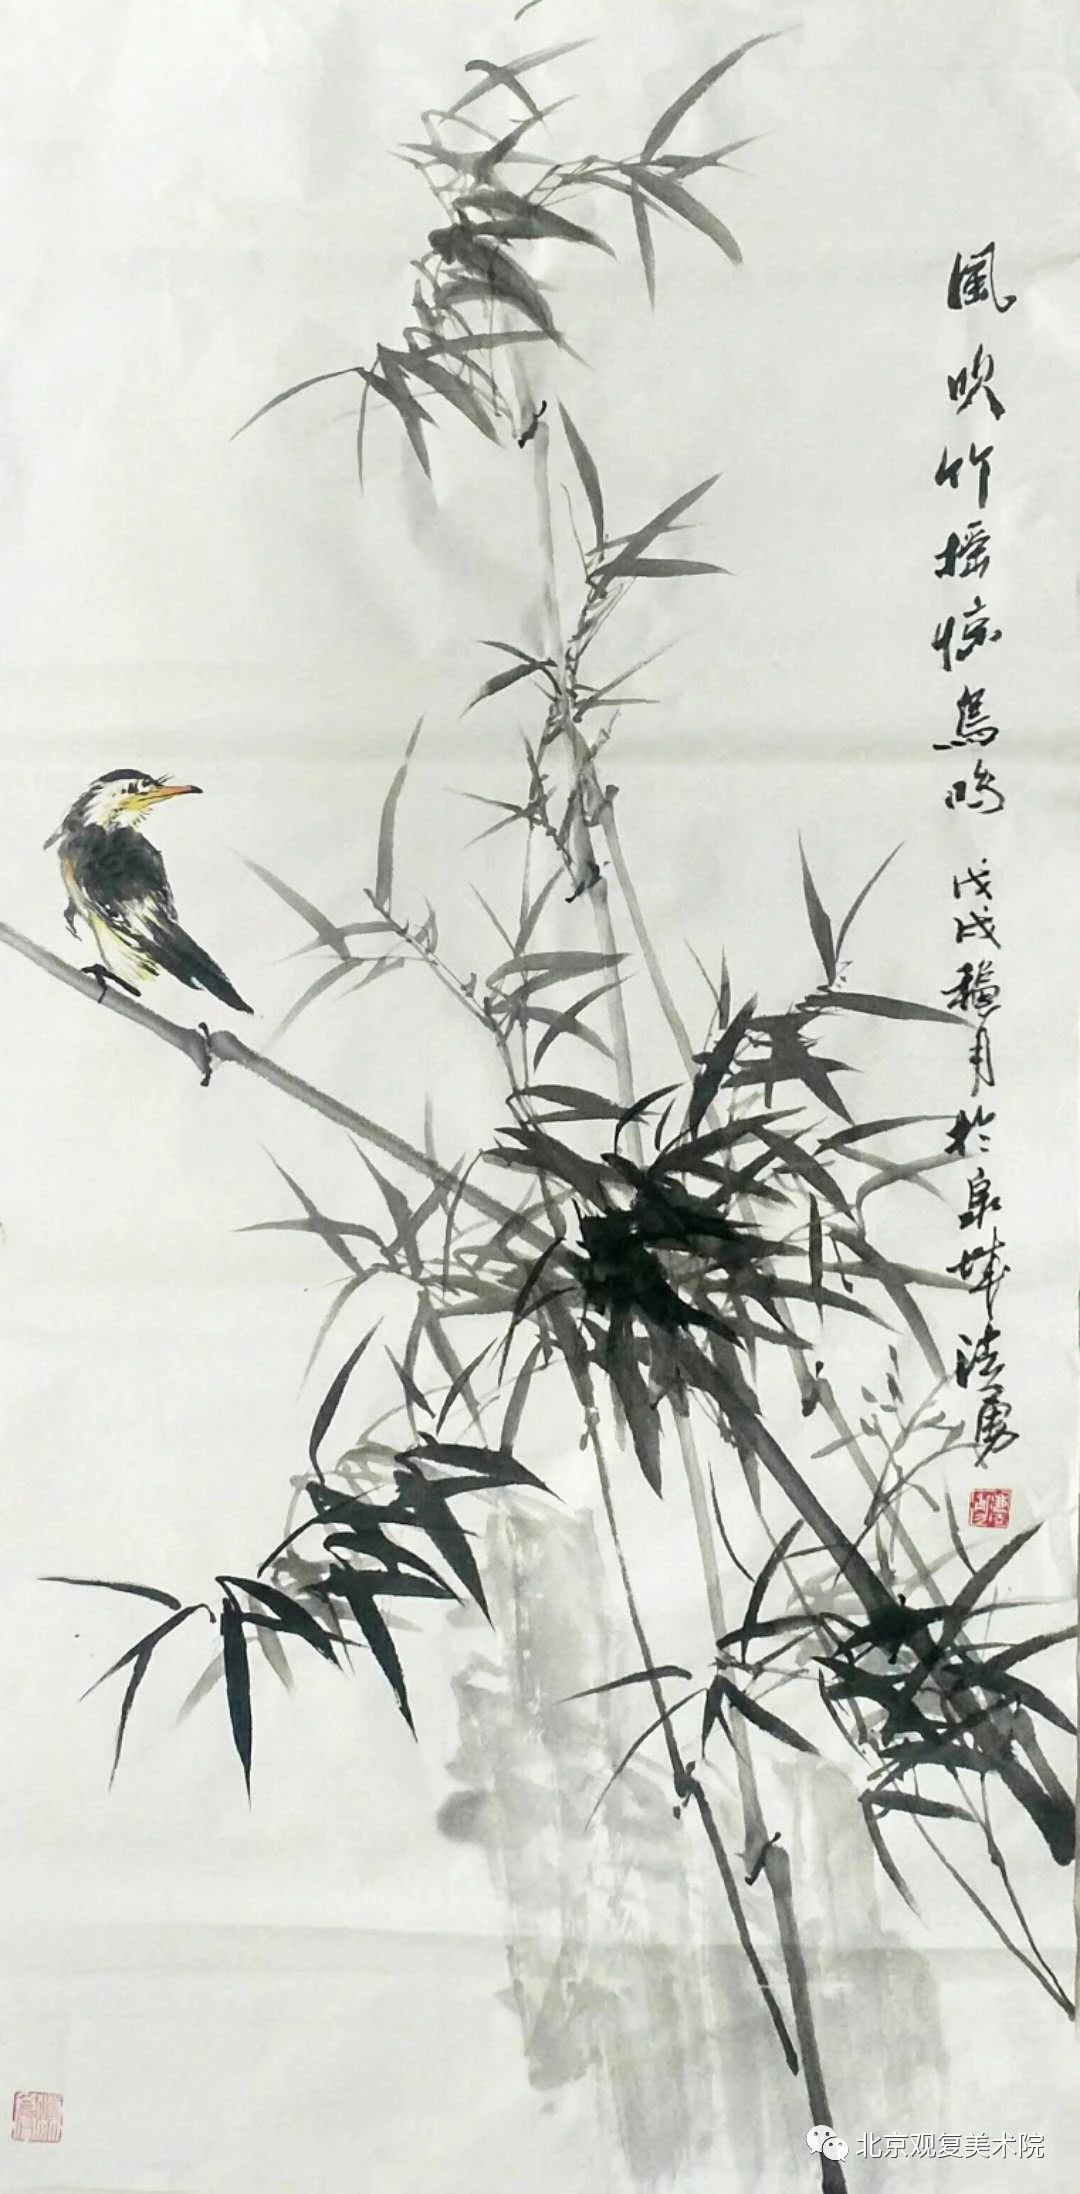 風吹竹摇惊鳥鸣
戊戌穐月於泉城法勇
北京观复美术院